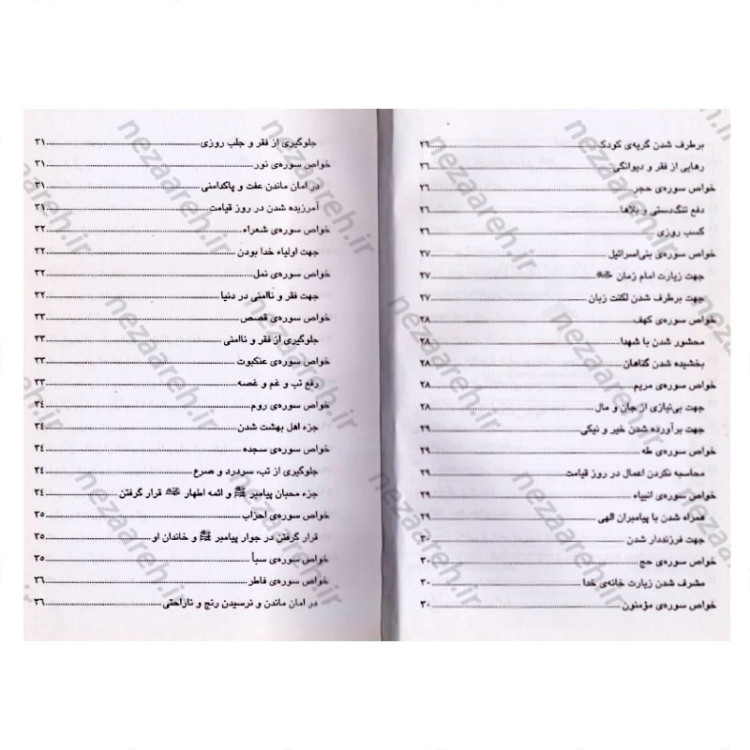 برطرف شدن گریه‌ی کودک ........ ۲۶
رهایی از فقر و دیوانگی ........ ۲۶
خواص سوره‌ی حجر ........ ۲۶
دفع تنگ‌دستی و بلاها ........ ۲۶
کسب روزی ........ ۲۶
خواص سوره‌ی بنی‌اسرائیل ........ ۲۷
جهت زیارت امام زمان ........ ۲۷
جهت برطرف شدن لکنت زبان ........ ۲۷
خواص سوره‌ی کهف ........ ۲۸
محشور شدن با شهدا ........ ۲۸
بخشیده شدن گناهان ........ ۲۸
خواص سوره‌ی مریم ........ ۲۸
جهت بی‌نیازی از جان و مال ........ ۲۸
جهت برآورده شدن خیر و نیکی ........ ۲۹
خواص سوره‌ی طه ........ ۲۹
محاسبه نکردن اعمال در روز قیامت ........ ۲۹
خواص سوره‌ی انبیاء ........ ۲۹
همراه شدن با پیامبران الهی ........ ۲۹
جهت فرزنددار شدن ........ ۳۰
خواص سوره‌ی حج ........ ۳۰
مشرف شدن زیارت خانه‌ی خدا ........ ۳۰
خواص سوره‌ی مؤمنون ........ ۳۰
جلوگیری از فقر و جلب روزی ........ ۳۱
خواص سوره‌ی نور ........ ۳۱
در امان ماندن عفت و پاکدامنی ........ ۳۱
آمرزیده شدن در روز قیامت ........ ۳۱
خواص سوره‌ی شعراء ........ ۳۲
جهت اولیاء خدا بودن ........ ۳۲
خواص سوره‌ی نمل ........ ۳۲
جهت فقر و ناامنی در دنیا ........ ۳۲
خواص سوره‌ی قصص ........ ۳۳
جلوگیری از فقر و ناامنی ........ ۳۳
خواص سوره‌ی عنکبوت ........ ۳۳
رفع تب و غم و غصه ........ ۳۳
خواص سوره‌ی روم ........ ۳۴
جزء اهل بهشت شدن ........ ۳۴
خواص سوره‌ی سجده ........ ۳۴
جلوگیری از تب، سردرد و صرع ........ ۳۴
جزء محبان پیامبر ﷺ و ائمه اطهار قرار گرفتن ........ ۳۴
خواص سوره‌ی احزاب ........ ۳۵
قرار گرفتن در جوار پیامبر ﷺ و خاندان او ........ ۳۵
خواص سوره‌ی سبأ ........ ۳۵
خواص سوره‌ی فاطر ........ ۳۶
در امان ماندن و نرسیدن رنج و ناراحتی ........ ۳۶
nezaareh.ir